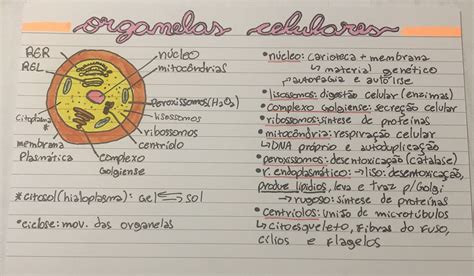 organelas celulares
RER
REL
citoplasma*
membrana
Plasmática
núcleo
mitocôndrias
Peroxissomos(H₂O₂)
lisossomos
ribossomos
centríolo
complexo
Golgiense
*citosol(hialoplasma): Gel ⇌ sol
•ciclose: mov. das organelas
•núcleo: carioteca + membrana
↳ material genético
↳ autofagia e autólise
•lisossomos: digestão celular (enzimas)
•complexo Golgiense: secreção celular
•ribossomos: síntese de proteínas
•mitocôndria: respiração celular
↳DNA próprio e autoduplicação
•peroxissomos: desentoxicação (catalase)
•r. endoplasmático: →liso: desentoxicação,
produz lipídios, leva e traz p/Golgi
→rugoso: síntese de proteínas
•centríolos: união de microtúbulos
↳citoesqueleto, fibras do fuso,
cílios e flagelos